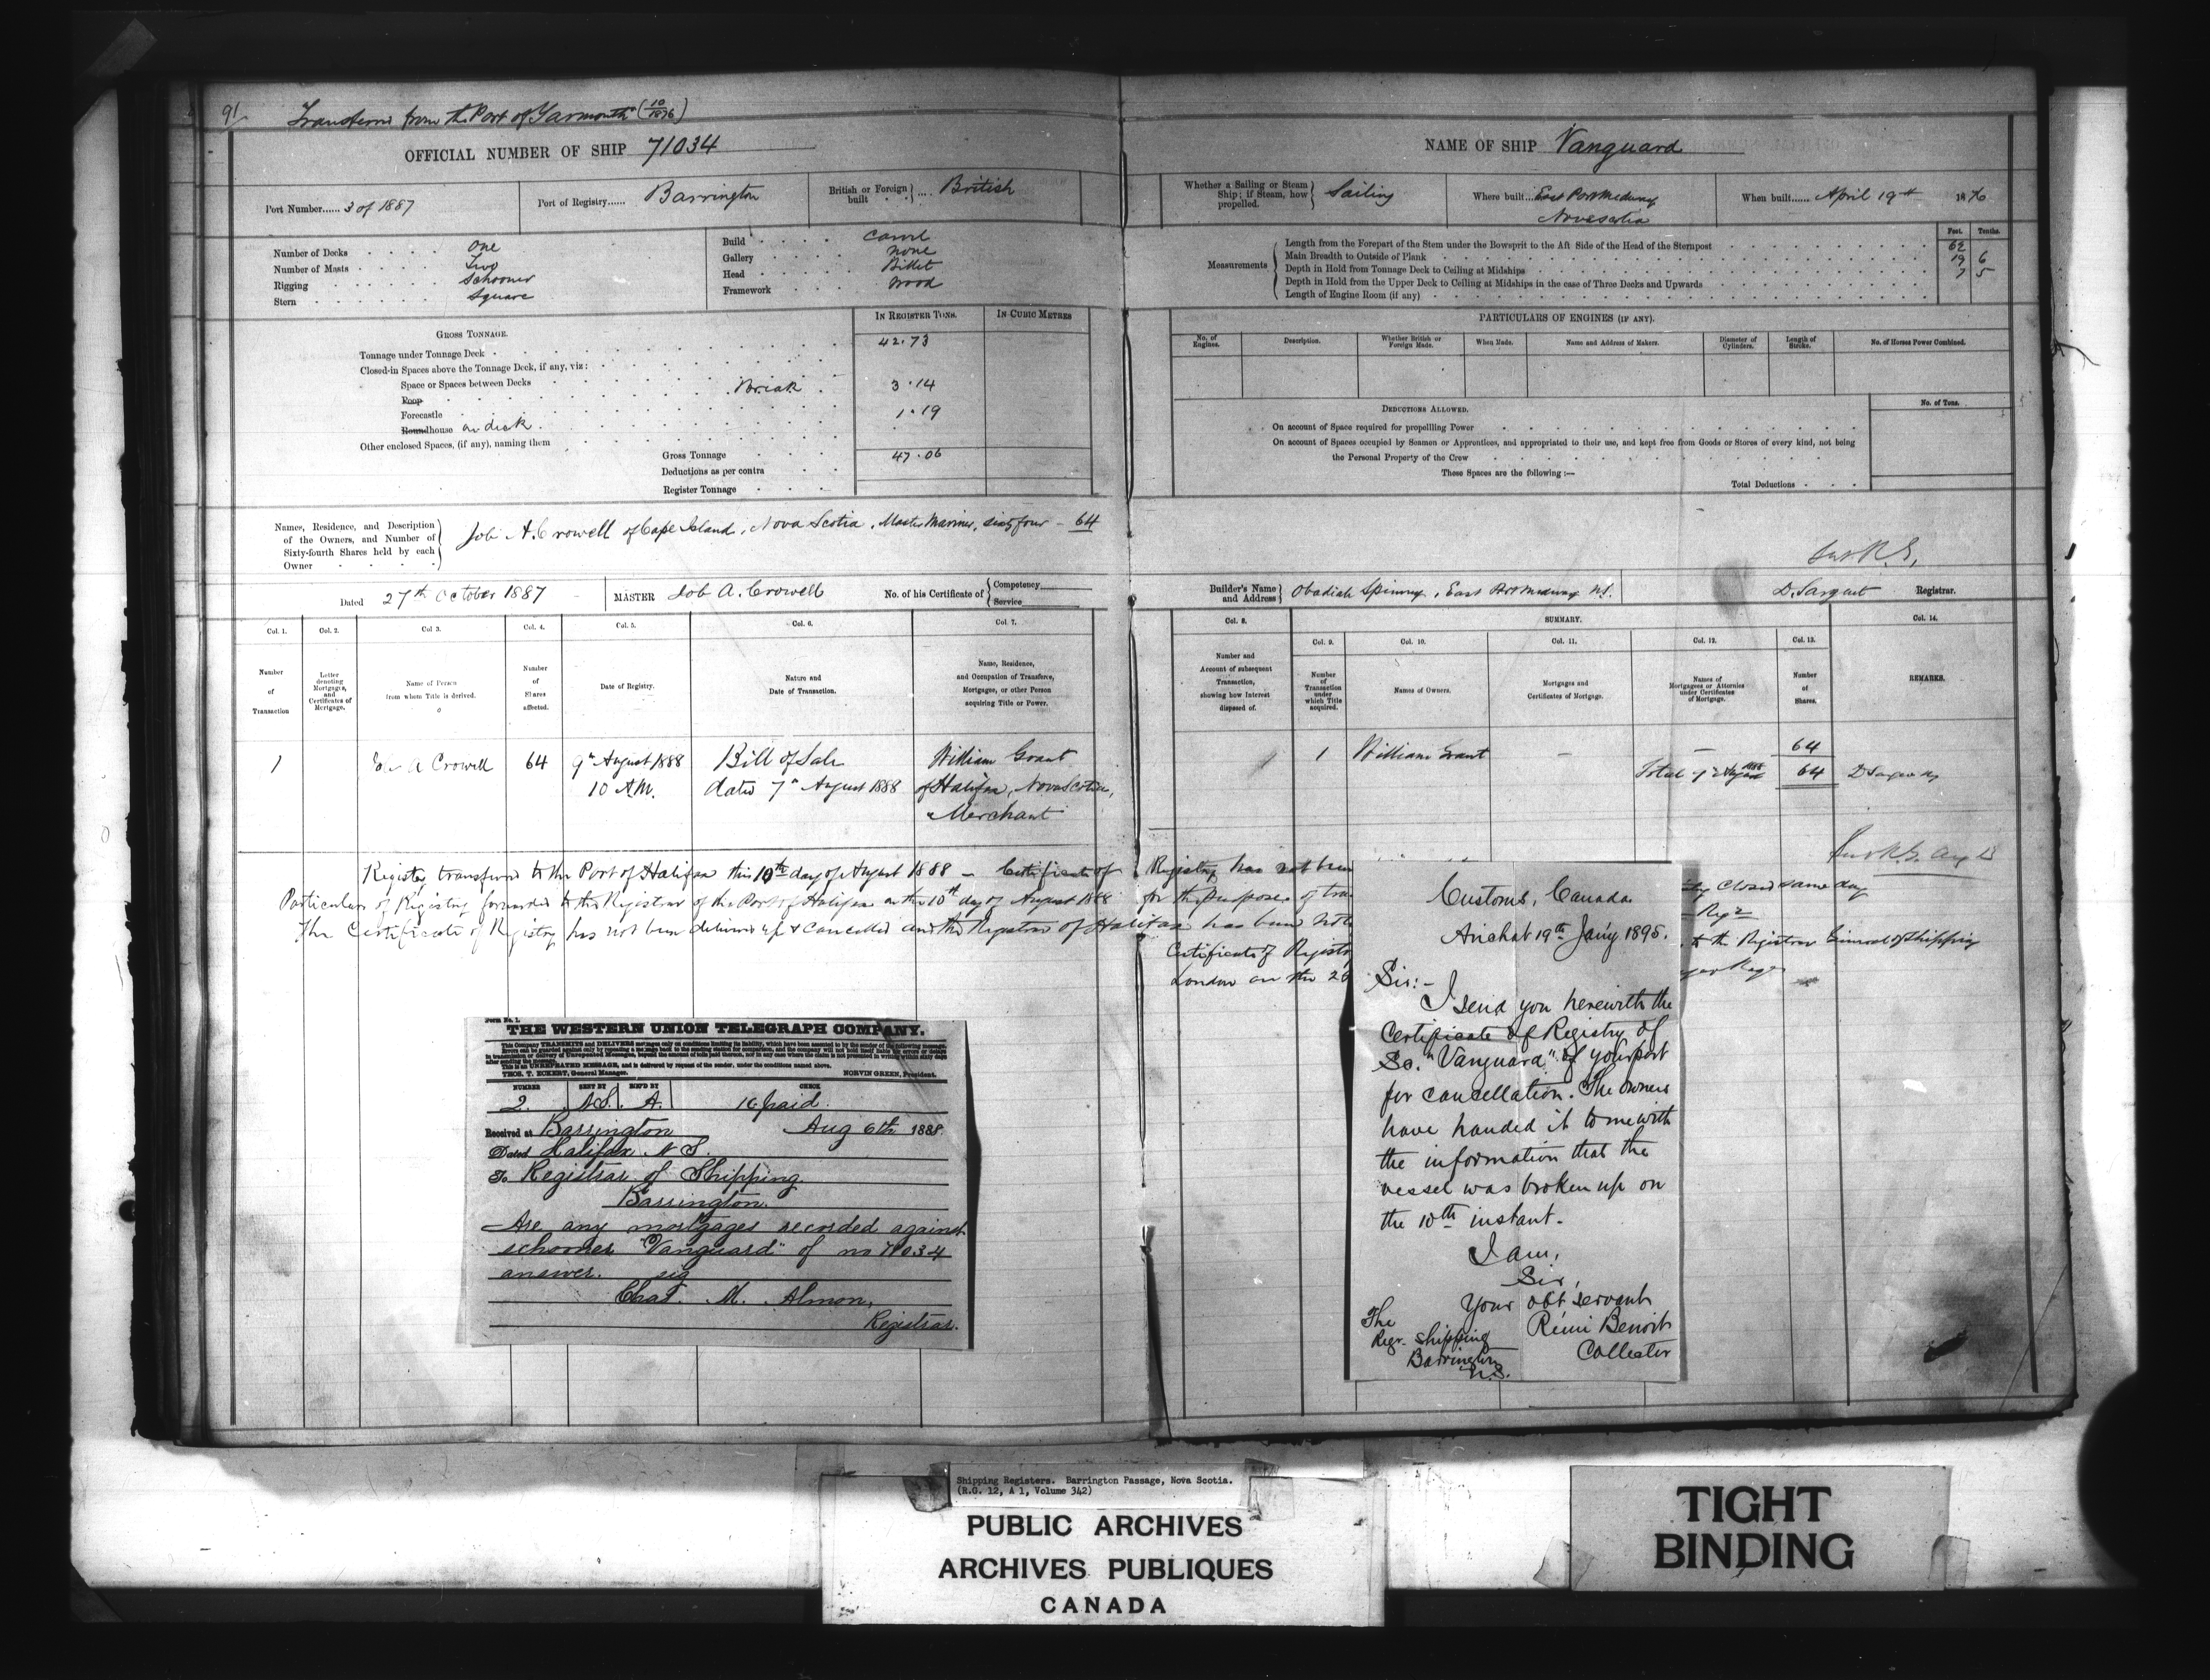 91
Transferred from the Port of Yarmouth (10/1876)
OFFICIAL NUMBER OF SHIP 71034
Port Number...... 3 of 1887
Port of Registry...... Barrington
British or Foreign built ... British
Number of Decks One
Number of Masts Two
Rigging Schooner
Stern Square
Build Carvel
Gallery None
Head Billet
Framework Wood
GROSS TONNAGE.
IN REGISTER TONS.
IN CUBIC METRES
Tonnage under Tonnage Deck 42.73
Closed-in Spaces above the Tonnage Deck, if any, viz:
Space or Spaces between Decks Break 3.14
Poop
Forecastle 1.19
Roundhouse on deck
Other enclosed Spaces, (if any), naming them
Gross Tonnage 47.06
Deductions as per contra
Register Tonnage
Names, Residence, and Description of the Owners, and Number of Sixty-fourth Shares held by each Owner
Job A. Crowell of Cape Island, Nova Scotia, Master Mariner, sixty four - 64
Dated 27th October 1887
MASTER Job A. Crowell
No. of his Certificate of Competency Service
Col. 1. Col. 2. Col 3. Col. 4. Col. 5. Col. 6. Col. 7.
Number of Transaction
Letter denoting Mortgages, and Certificates of Mortgage.
Name of Person from whom Title is derived.
Number of Shares affected.
Date of Registry.
Nature and Date of Transaction.
Name, Residence, and Occupation of Transferee, Mortgagee, or other Person acquiring Title or Power.
1 A Crowell 64 9th August 1888 Bill of Sale William Grant
10 A.M. dated 7th August 1888 of Halifax, Nova Scotia,
Merchant
NAME OF SHIP Vanguard
Whether a Sailing or Steam Ship; if Steam, how propelled. Sailing
Where built... East Port Medway Nova Scotia
When built...... April 19th 1876
Measurements
Feet. Tenths.
Length from the Forepart of the Stem under the Bowsprit to the Aft Side of the Head of the Sternpost 62
Main Breadth to Outside of Plank 19 6
Depth in Hold from Tonnage Deck to Ceiling at Midships 7 5
Depth in Hold from the Upper Deck to Ceiling at Midships in the case of Three Decks and Upwards
Length of Engine Room (if any)
PARTICULARS OF ENGINES (IF ANY).
No. of Engines.
Description.
Whether British or Foreign Made.
When Made.
Name and Address of Makers.
Diameter of Cylinders.
Length of Stroke.
No. of Horses Power Combined.
DEDUCTIONS ALLOWED.
No. of Tons.
On account of Space required for propelling Power
On account of Spaces occupied by Seamen or Apprentices, and appropriated to their use, and kept free from Goods or Stores of every kind, not being
the Personal Property of the Crew
These Spaces are the following:—
Total Deductions
Builder's Name and Address Obadiah Spinney, East Port Medway N.S.
D. Sargent Registrar.
Col. 8. SUMMARY. Col. 14.
Col. 9. Col. 10. Col. 11. Col. 12. Col. 13.
Number and Account of subsequent Transaction, showing how Interest disposed of.
Number of Transaction under which Title acquired.
Names of Owners.
Mortgages and Certificates of Mortgage.
Names of Mortgagees or Attornies under Certificates of Mortgage.
Number of Shares.
REMARKS.
1 William Grant - - 64
Total 9th August 1888 64 D Sargent
Register transferred to the Port of Halifax this 10th day of August 1888 - Certificate of Registry has not been
Particulars of Registry forwarded to the Registrar of the Port of Halifax on the 10th day of August 1888 for the purposes of tra
The Certificate of Registry has not been delivered up & cancelled and the Registrar of Halifax has been
Certificate of Registry
London on the 26
Closed same day
to the Registrar General of Shipping
Form No. 1.
THE WESTERN UNION TELEGRAPH COMPANY.
This Company TRANSMITS and DELIVERS messages only on conditions limiting its liability, which have been assented to by the sender of the following message.
Errors can be guarded against only by repeating a message back to the sending station for comparison, and the company will not hold itself liable for errors or delays
in transmission or delivery of Unrepeated Messages, beyond the amount of tolls paid thereon, nor in any case where the claim is not presented in writing within sixty days
after sending the message.
This is an UNREPEATED MESSAGE, and is delivered by request of the sender, under the conditions named above.
THOS. T. ECKERT, General Manager. NORVIN GREEN, President.
NUMBER SENT BY REC'D BY CHECK
2. A. 16 paid
Received at Barrington Aug 6th 1888
Dated Halifax N S.
To Registrar of Shipping
Barrington.
Are any mortgages recorded against
schooner "Vanguard" of no 71034
answer. sig
Chas. M. Almon,
Registrar.
Customs, Canada.
Arichat 19th Jan'y 1895.
Sir:-
I send you herewith the
Certificate of Registry of
Sc. "Vanguard" of your port
for cancellation. The owners
have handed it to me with
the information that the
vessel was broken up on
the 10th instant.
I am,
Sir,
Your obt servant
Rémi Benoit
Collector
The
Regr. Shipping
Barrington
N.S.
Shipping Registers. Barrington Passage, Nova Scotia.
(R.G. 12, A 1, Volume 342)
PUBLIC ARCHIVES
ARCHIVES PUBLIQUES
CANADA
TIGHT
BINDING